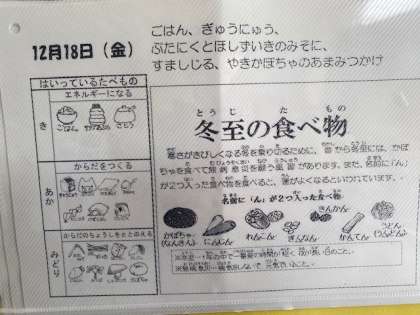 12月18日（金）
ごはん、ぎゅうにゅう、
ぶたにくとほしずいきのみそに、
すましじる、やきかぼちゃのあまみつかけ
はいっているたべもの
エネルギーになる
き
ごはん
さとう
からだをつくる
あか
からだのちょうしをととのえる
みどり
とうじ た もの
冬至の食べ物
寒さがきびしくなる冬を乗りきるために、昔から冬至には、かぼ
ちゃを食べて無病息災を願う風習があります。また、名前に「ん」
が2つ入った食べ物を食べると、運がよくなるといわれています。
名前に「ん」が2つ入った食べ物
かぼちゃ
(なんきん)
にんじん
れんこん
ぎんなん
きんかん
かんてん
うどん
(うんどん)
※冬至…1年の中で一番昼の時間が短く、夜が長い日のこと。
※無病息災…病気をしないで、元気でいること。